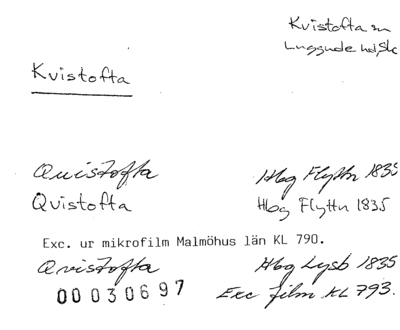 Kvistofta sn
Luggude hd, Sk
Kvistofta
Quistofta Hbg Flyttn 1835
Qvistofta Hbg Flyttn 1835
Exc. ur mikrofilm Malmöhus län KL 790.
Qvistofta Hbg Lysb 1835
00030697 Exc film KL 793.